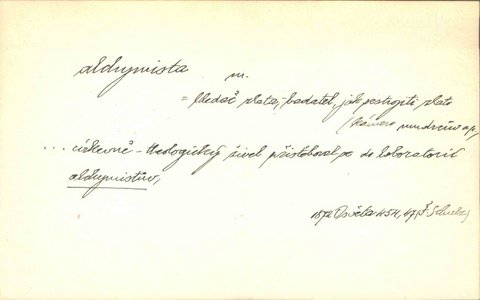 alchymista
m.
= hledač zlata, badatel, jak postopiti zlato
(kámen mudrců a p.)
... církevně-theologický živel přistěhoval se do laboratoří
alchymistův,
1872 Osvěta 454, (F. Schulz)